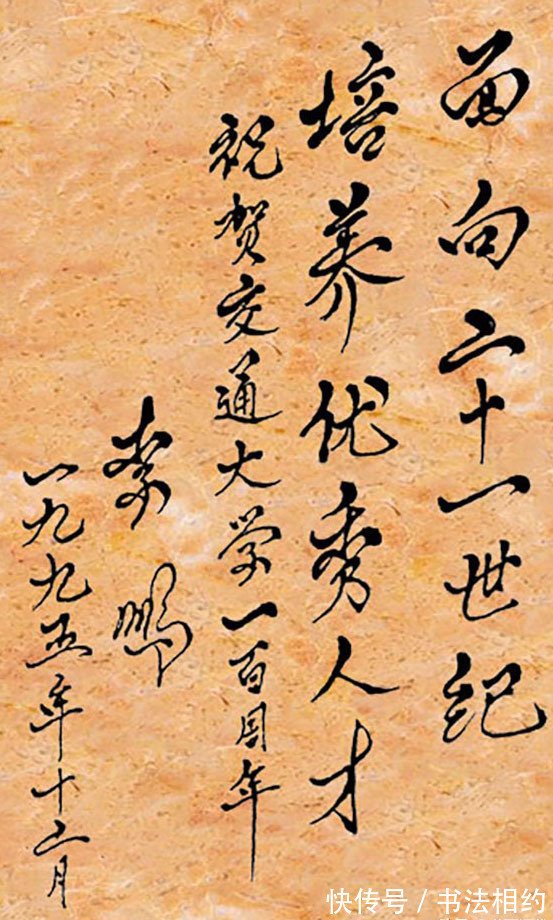 面向二十一世纪
培养优秀人才
祝贺交通大学一百周年
李鹏
一九九五年十二月
快传号 / 书法相约